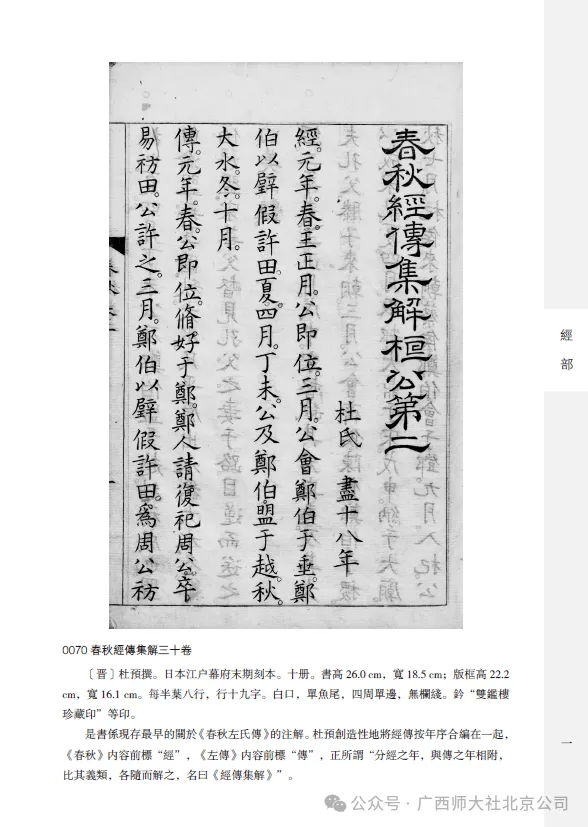 春秋經傳集解桓公第二
杜氏 盡十八年
經。元年。春。王正月。公即位。三月。公會鄭伯于垂。鄭
伯以璧假許田。夏。四月。丁未。公及鄭伯。盟于越。秋。
大水。冬。十月。
傳。元年。春。公即位。脩好于鄭。鄭人請復祀周公。卒
易祊田。公許之。三月。鄭伯以璧假許田。爲周公祊
經部
0070 春秋經傳集解三十卷
〔晋〕杜預撰。日本江户幕府末期刻本。十册。書高 26.0 cm，寬 18.5 cm；版框高 22.2
cm，寬 16.1 cm。每半葉八行，行十九字。白口，單魚尾，四周單邊，無欄綫。鈐“雙鑑樓
珍藏印”等印。
是書係現存最早的關於《春秋左氏傳》的注解。杜預創造性地將經傳按年序合編在一起，
《春秋》内容前標“經”，《左傳》内容前標“傳”，正所謂“分經之年，與傳之年相附，
比其義類，各隨而解之，名曰《經傳集解》”。
一
公众号 · 广西师大社北京公司